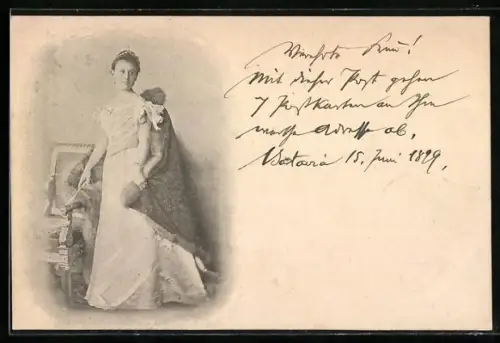 Verehrte Frau!
Mit dieser Post gehen
7 Postkarten an Ihre
werthe Adresse ab.
Batavia 15. Juni 1899.